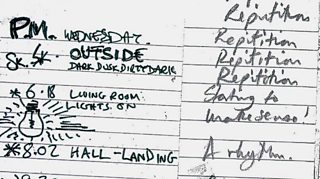 P.M. WEDNESDAY.
OUTSIDE
DARK DUSK DIRTY DARK
*6.18 LIVING ROOM:
LIGHTS ON
*8.02 HALL-LANDING
Repitition
Repitition
Repitition
Repitition
Starting to
make sense!
A rhythm.